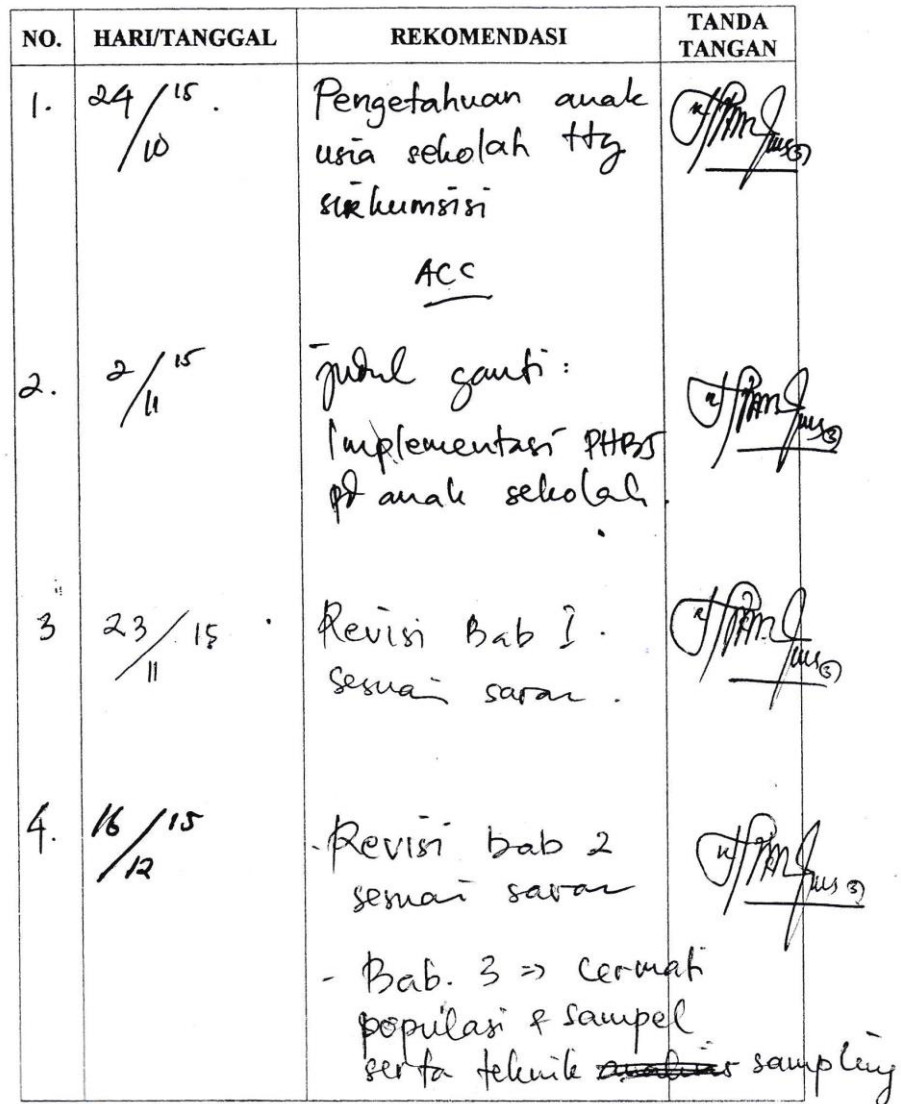 NO. HARI/TANGGAL REKOMENDASI TANDA TANGAN
1. 24/10 15. Pengetahuan anak
usia sekolah ttg
sirkumsisi
ACC
2. 2/11 15 judul ganti:
Implementasi PHBS
pd anak sekolah.
3 23/11 15 Revisi Bab I.
sesuai saran.
4. 16/12 15 - Revisi bab 2
sesuai saran
- Bab. 3 => Cermati
populasi & sampel
serta teknik sampling